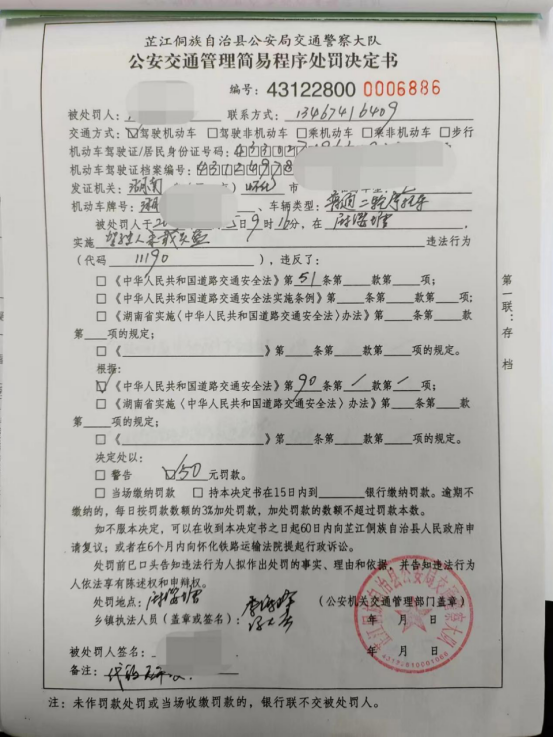 芷江侗族自治县公安局交通警察大队
公安交通管理简易程序处罚决定书
编号：43122800 0006886
被处罚人： 联系方式：13467416409
交通方式：☑驾驶机动车 □驾驶非机动车 □乘机动车 □乘非机动车 □步行
机动车驾驶证/居民身份证号码：
机动车驾驶证档案编号：
发证机关：湖南 怀化 市
机动车牌号：湖 、车辆类型：普通二轮摩托车
被处罚人于 9时1分，在
实施 驾驶人未戴头盔 违法行为
（代码 11190 ），违反了：
□《中华人民共和国道路交通安全法》第51条第 款第 项；
□《中华人民共和国道路交通安全法实施条例》第 条第 款第 项；
□《湖南省实施〈中华人民共和国道路交通安全法〉办法》第 条第 款
第 项的规定；
□《 》第 条第 款第 项的规定。
根据：
☑《中华人民共和国道路交通安全法》第90条第/款第/项；
□《湖南省实施〈中华人民共和国道路交通安全法〉办法》第 条第 款
第 项的规定；
□《 》第 条第 款第 项的规定。
决定处以：
□ 警告 ☑50元罚款。
□ 当场缴纳罚款 □ 持本决定书在15日内到 银行缴纳罚款。逾期不
缴纳的，每日按罚款数额的3%加处罚款，加处罚款的数额不超过罚款本数。
如不服本决定，可以在收到本决定书之日起60日内向芷江侗族自治县人民政府申
请复议；或者在6个月内向怀化铁路运输法院提起行政诉讼。
处罚前已口头告知违法行为人拟作出处罚的事实、理由和依据，并告知违法行为
人依法享有陈述权和申辩权。
处罚地点：
（公安机关交通管理部门盖章）
乡镇执法人员（盖章或签名）：
年 月 日
年 月 日
被处罚人签名：
备注：
注：未作罚款处罚或当场收缴罚款的，银行联不交被处罚人。
第一联：存档